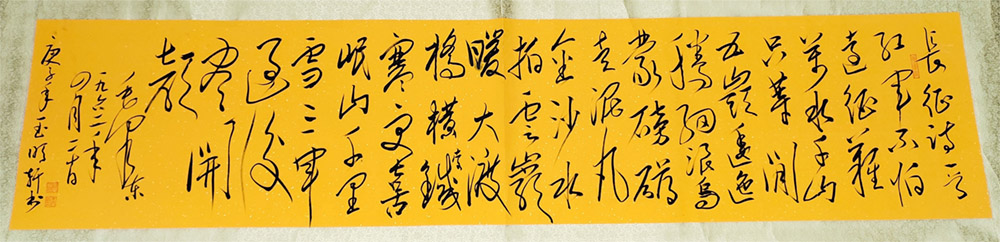 長征诗一首
红軍不怕
遠征難
萬水千山
只等闲
五嶺逶迤
腾细浪烏
蒙磅礴
走泥丸
金沙水
拍雲
暖大渡
橋横鐵索
寒更喜
岷山千里
雪三軍
過後
盡開
顏
毛泽东
一九六二年
四月二十日
庚子年玉明轩书